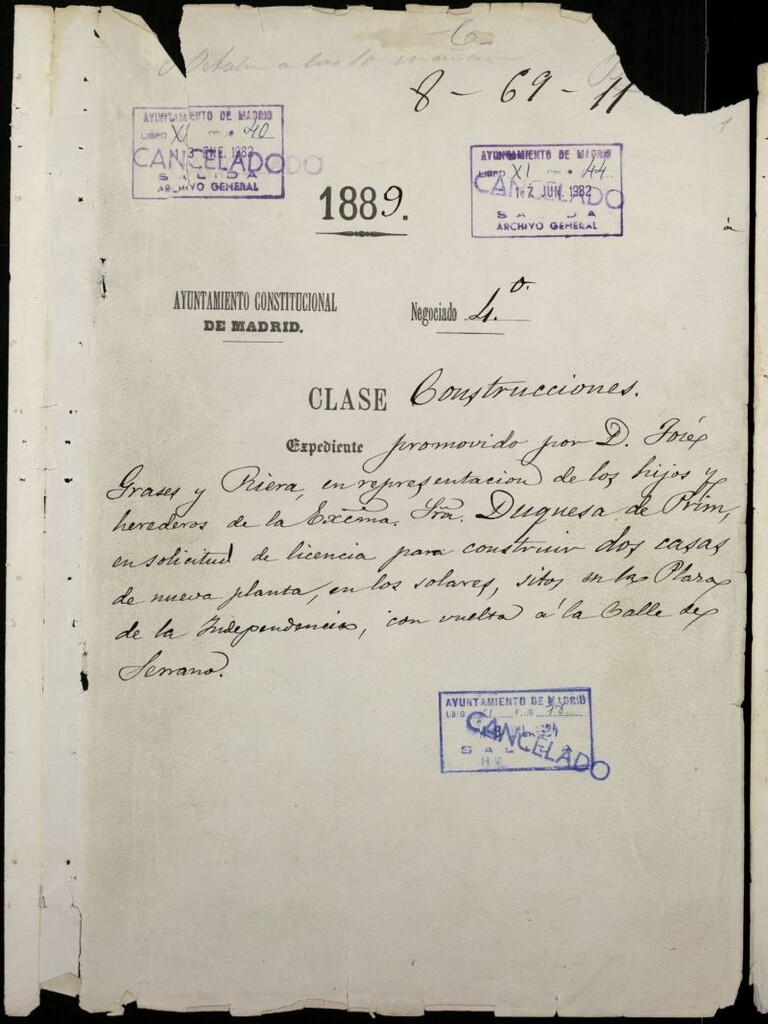 6-
8 - 69 - 11
AYUNTAMIENTO DE MADRID
LIBRO XI FOLIO 40
3 ENE. 1982
CANCELADO
SALIDA
ARCHIVO GENERAL
AYUNTAMIENTO DE MADRID
LIBRO XI FOLIO 44
JUN. 1982
CANCELADO
SALIDA
ARCHIVO GENERAL
1889.
AYUNTAMIENTO CONSTITUCIONAL
DE MADRID.
Negociado 4.º
CLASE Construcciones.
Expediente promovido por D. José
Grases y Riera, en representacion de los hijos y
herederos de la Excma. Sra. Duquesa de Prim,
en solicitud de licencia para construir dos casas
de nueva planta, en los solares, sitos en la Plaza
de la Independencia, con vuelta á la Calle de
Serrano.
AYUNTAMIENTO DE MADRID
LIBRO XI FOLIO
CANCELADO
SALIDA